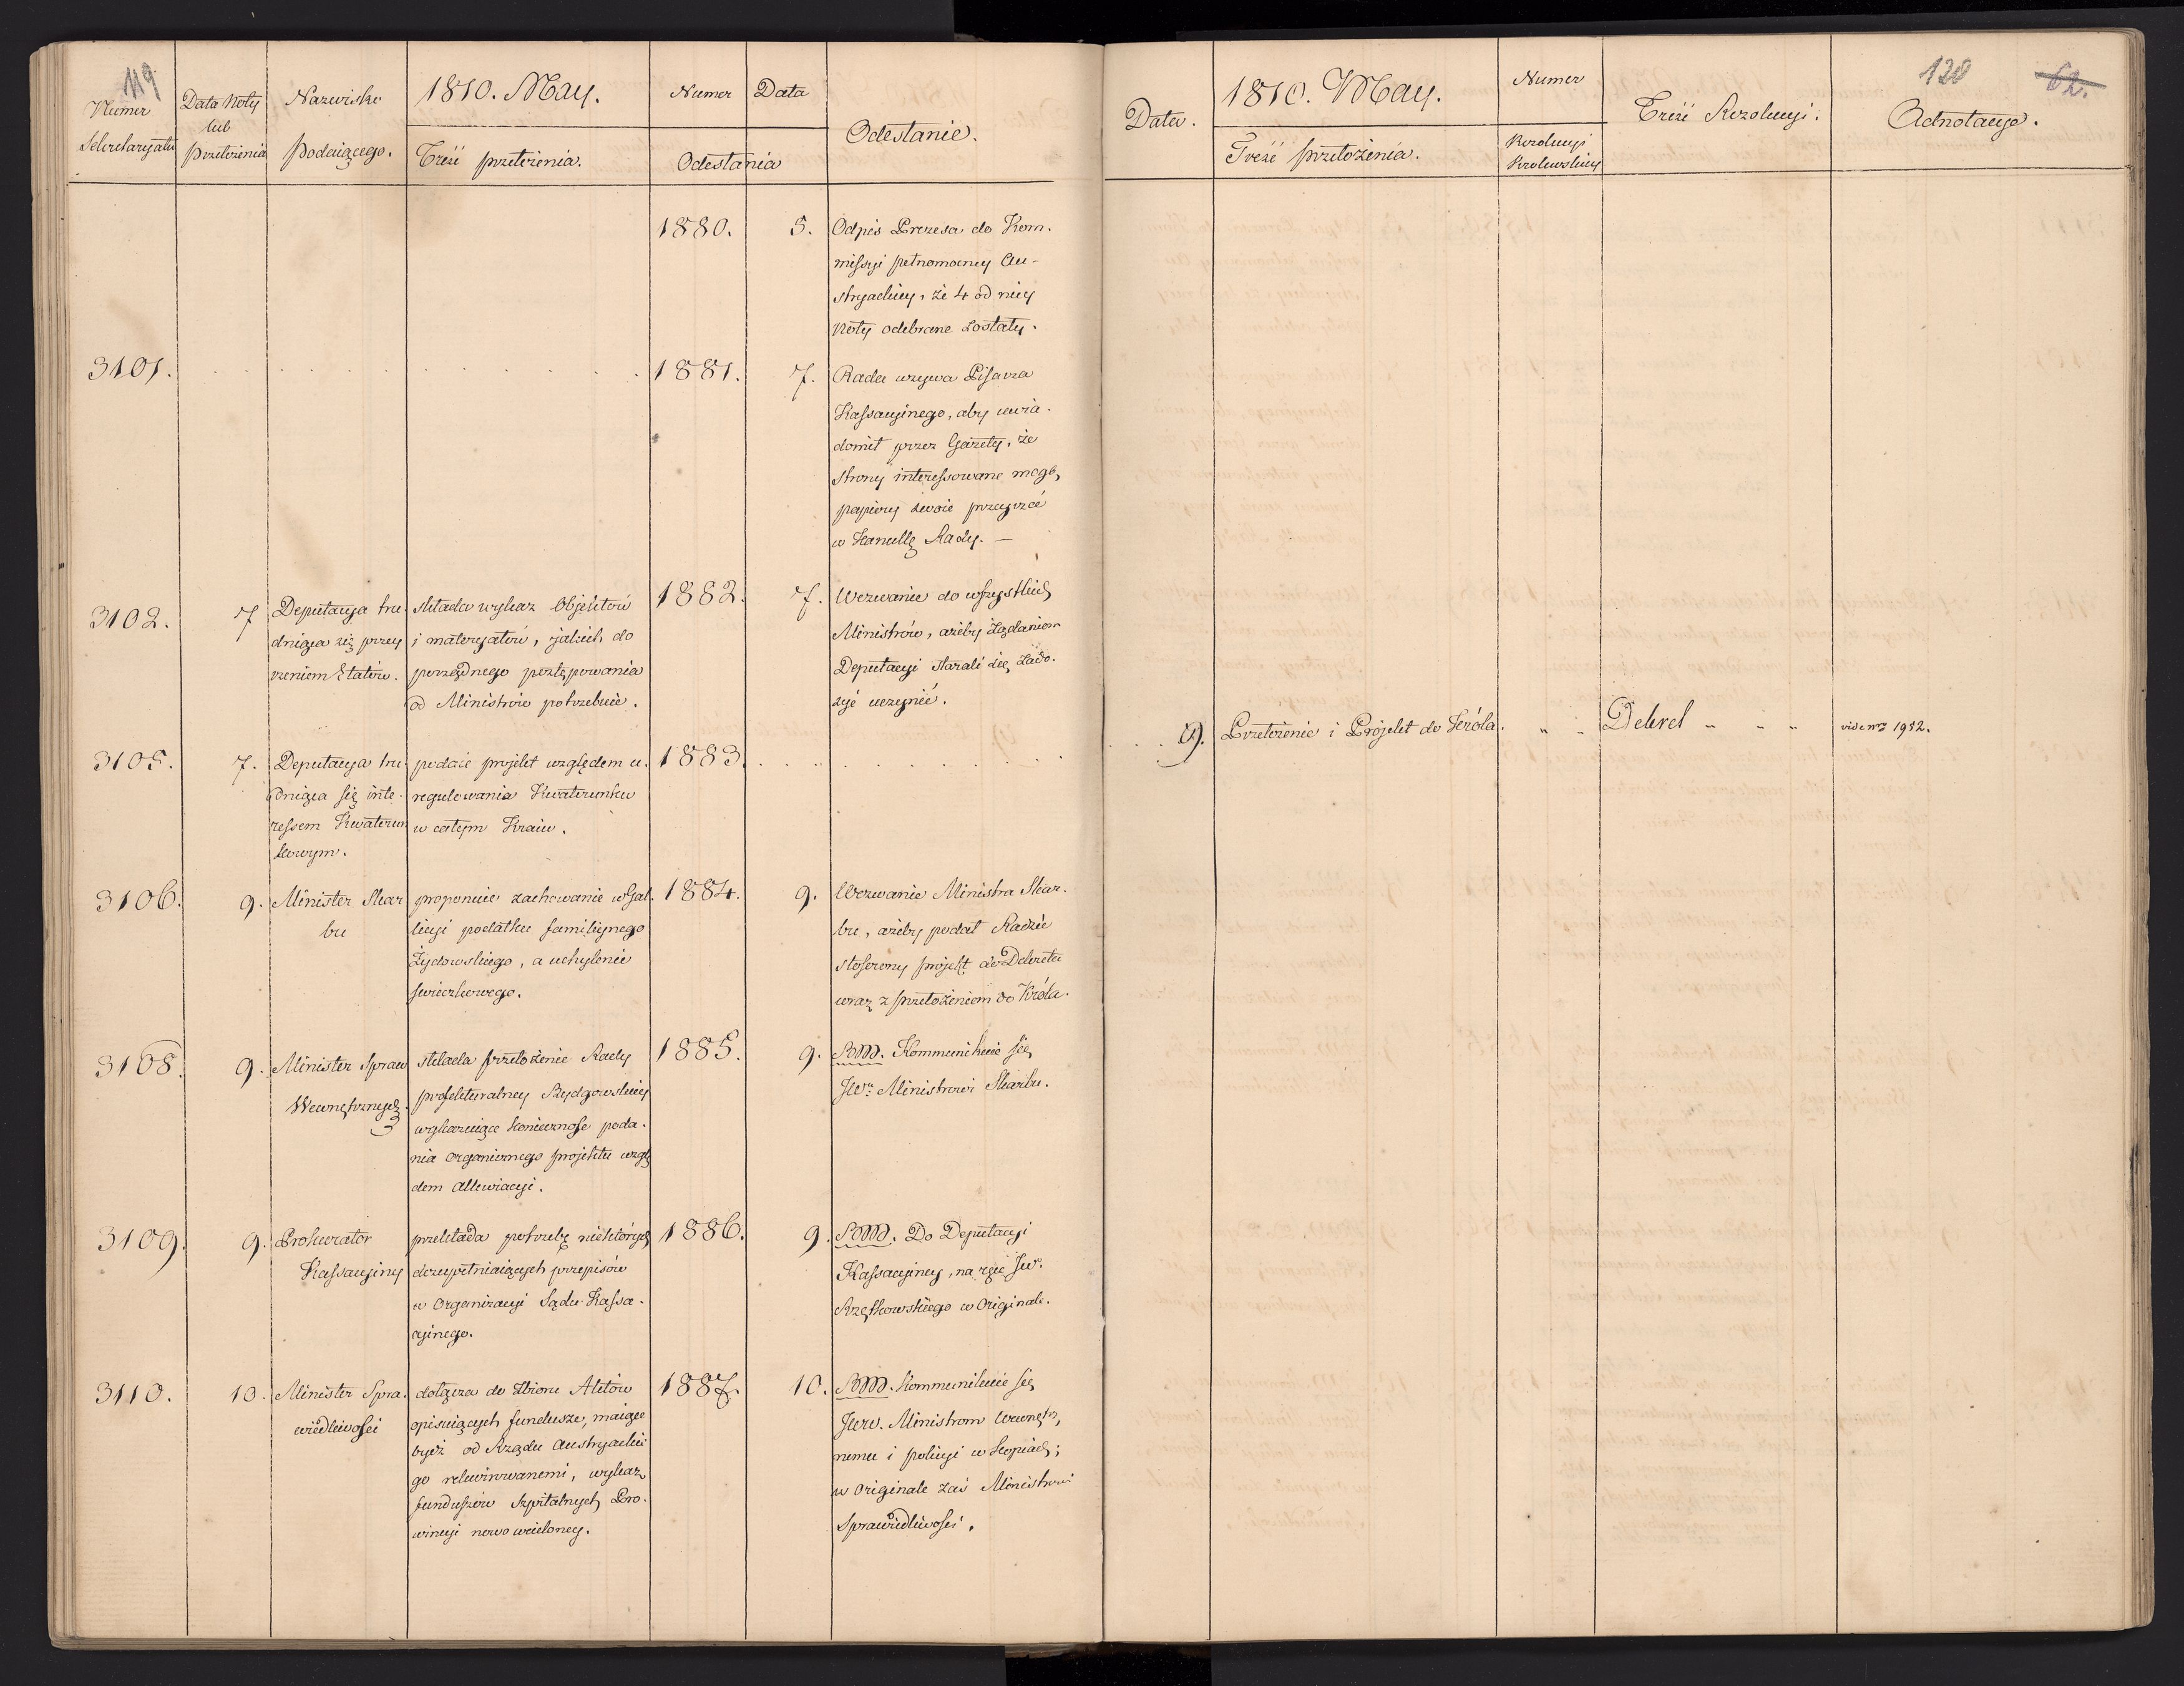 119
Numer Sekretaryatu
Data Noty lub Przełożenia
Nazwisko Podaiącego.
1810. May.
Treść przełożenia.
Numer Data
Odesłania
Odesłanie.
1880. 5. Odpis Prezesa do Kom-
missyi pełnomocney Au-
stryackiey, że 4 od niey
Noty odebrane zostały.
3101. 1881. 7. Rada wzywa Pisarza
Kassacyinego, aby uwia-
domił przez Gazety, że
strony interessowane mogą
papiery swoie przeyrzeć
w Kancell. Rady. —
3102. 7 Deputacya tru-
dniąca się przey-
rzeniem Etatów.
składa wykaz Objektów
i materyałów, jakich do
porządnego postępowania
od Ministrów potrzebuie.
1882. 7. Wezwanie do wszystkich
Ministrów, ażeby żądaniom
Deputacyi starali się zado-
syć uczynić.
3105. 7. Deputacya tru-
dniąca się inte-
ressem Kwaterun
kowym.
podaie projekt względem u-
regulowania Kwaterunku
w całym Kraiu.
1883.
3106. 9. Minister Skar
bu
proponuie zachowanie w Gal-
licyi podatku familiynego
Żydowskiego, a uchylenie
swieczkowego.
1884. 9. Wezwanie Ministra Skar-
bu, ażeby podał Radzie
stosowny projekt do Dekretu
wraz z przełożeniem do Króla.
3108. 9. Minister Spraw
Wewnętrznych.
składa przełożenie Rady
prefekturalney Bydgowskiey
wykazuiące konieczność poda-
nia organicznego projektu wzglę
dem allewiacyi.
1885. 9. BM. Kommunikuie się
JWu Ministrowi Skarbu.
3109. 9. Prokurator
Kassacyiny
przekłada potrzebę niektórych
dozupełniaiących przepisów
w Organizacyi Sądu Kassa-
cyinego.
1886. 9. BM. Do Deputacyi
Kassacyiney, na ręce JW.
Rzętkowskiego w Originale.
3110. 10. Minister Spra-
wiedliwości
dołącza do Zbioru Aktów
opisuiących fundusze, maiące
bydź od Rządu Austryackie
go rekwirowanemi, wykaz
funduszów Szpitalnych Pro-
wincyi nowo wcieloney.
1887. 10. BM. Kommunikuie się
JWW. Ministrom Wewnętrz
nemu i policyi w kopiach;
w Originale zaś Ministrowi
Sprawiedliwości.
120
62.
Data.
1810. May.
Treść przełożenia.
Numer
Rezolucyi Krolewskiey
Treść Rezolucyi.
Adnotacya.
9. Przełożenie i Projekt do Króla. „ „ Dekret „ „ „ vide nro 1952.